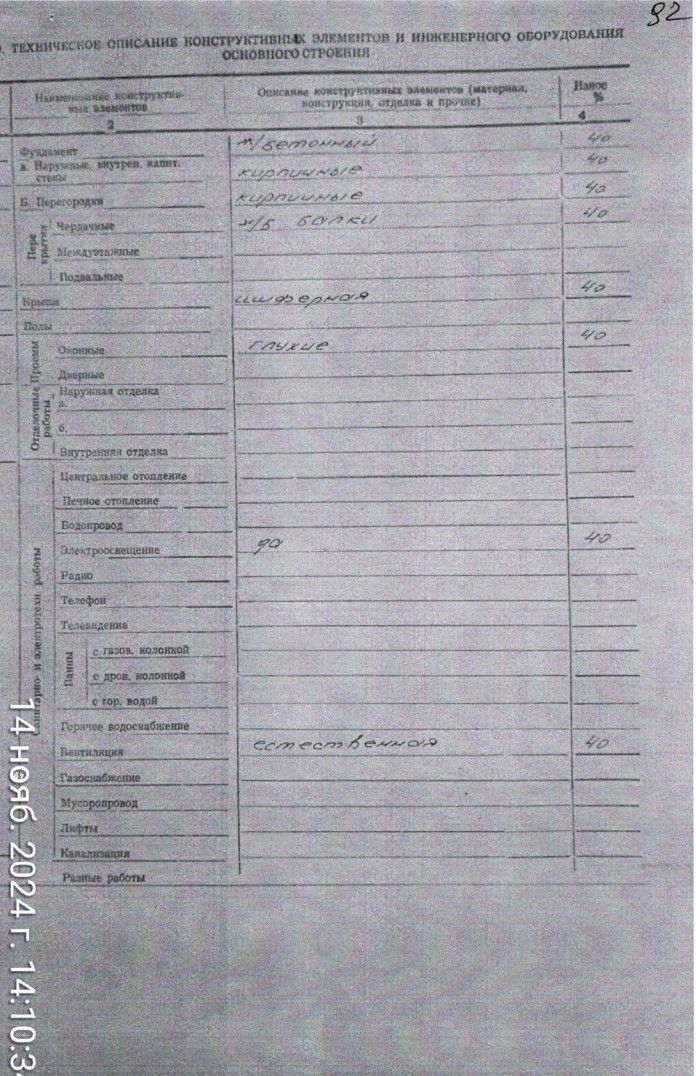 92
. ТЕХНИЧЕСКОЕ ОПИСАНИЕ КОНСТРУКТИВНЫХ ЭЛЕМЕНТОВ И ИНЖЕНЕРНОГО ОБОРУДОВАНИЯ
ОСНОВНОГО СТРОЕНИЯ
Наименование конструктив-
ных элементов
Описание конструктивных элементов (материал,
конструкция, отделка и прочие)
Износ
%
2 3 4
Фундамент ж/бетонный 40
а. Наружные, внутрен. капит.
стены кирпичные 40
Б. Перегородки кирпичные 40
Пере
крытия
Чердачные ж/б балки 40
Междуэтажные
Подвальные
Крыша шиферная 40
Полы
Проемы
Оконные глухие 40
Дверные
Отделочные
работы
Наружная отделка
а.
б.
Внутренняя отделка
анитарно- и электротехн. работы
Центральное отопление
Печное отопление
Водопровод
Электроосвещение да 40
Радио
Телефон
Телевидение
Ванны
с газов. колонкой
с дров. колонкой
с гор. водой
Горячее водоснабжение
Вентиляция естественная 40
Газоснабжение
Мусоропровод
Лифты
Канализация
Разные работы
14 нояб. 2024 г. 14:10:3